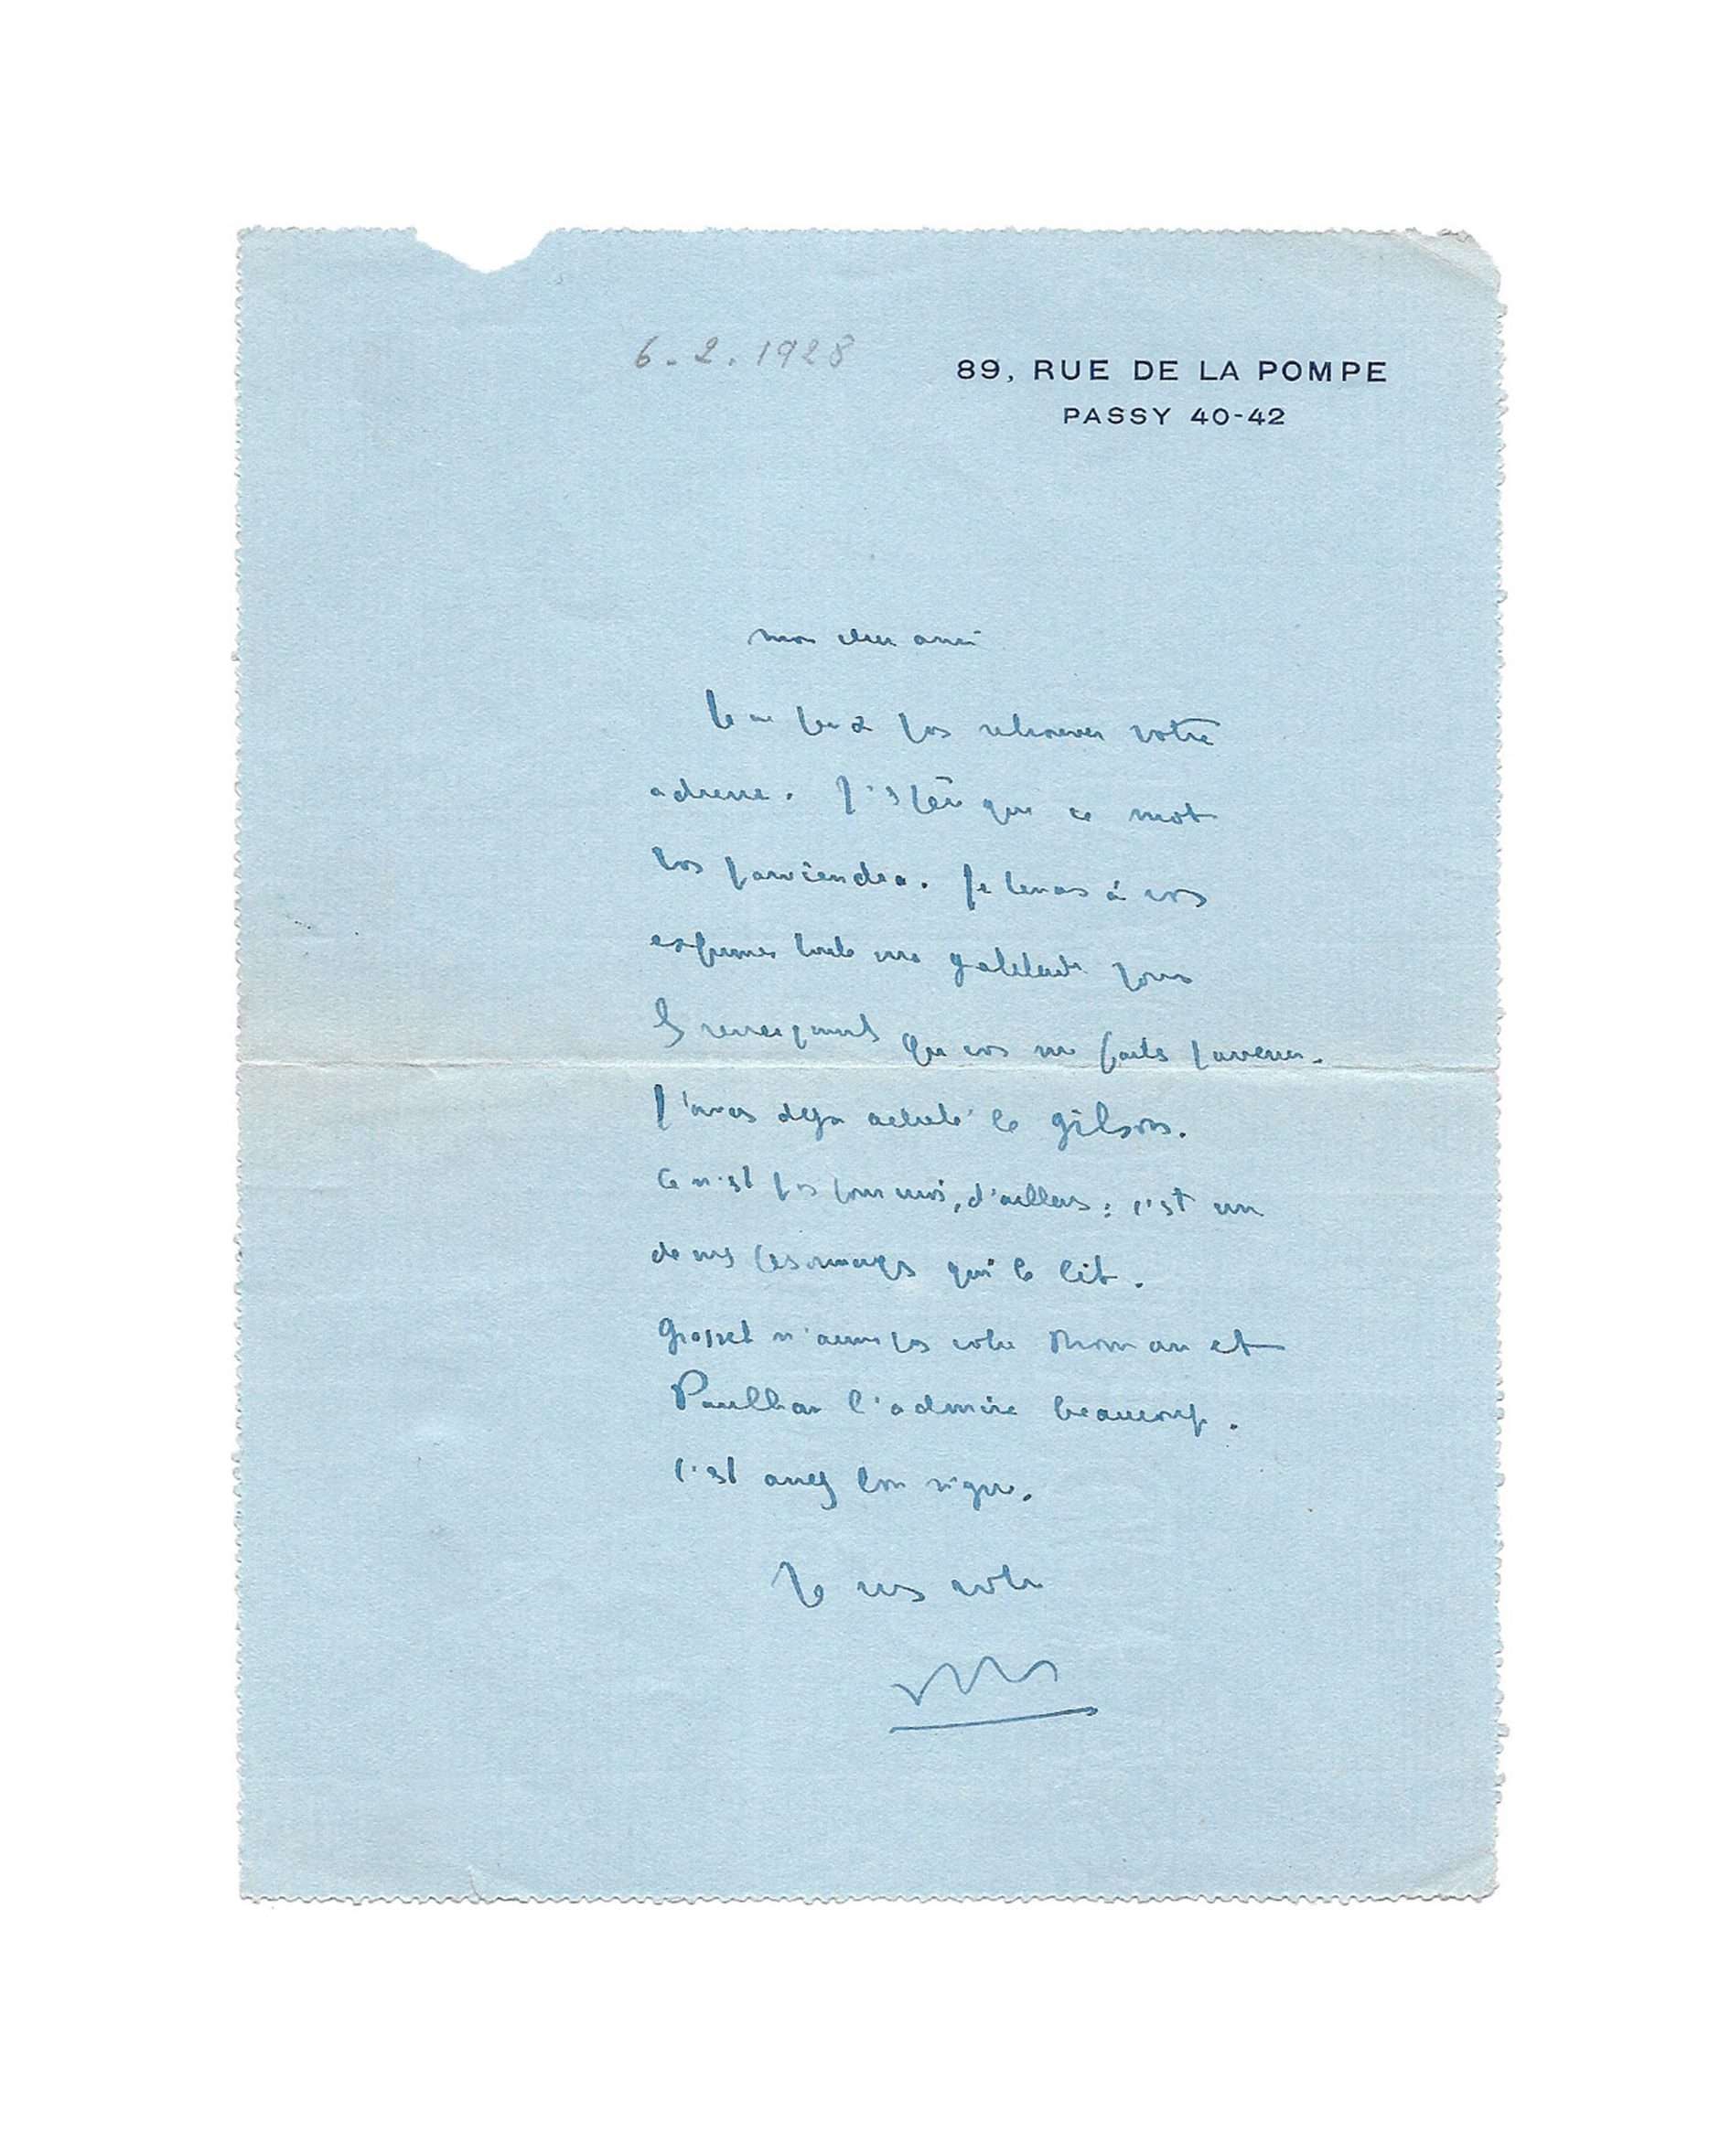 6.2.1928
89, RUE DE LA POMPE
PASSY 40-42
mon cher ami
Je ne peux pas retrouver votre
adresse. J'espère que ce mot
vous parviendra. Je tenais à vous
exprimer toute ma gratitude pour
les renseignements que vous me faites parvenir.
J'avais déjà acheté le Gilson.
Ce n'est pas pour moi, d'ailleurs : c'est un
de mes personnages qui le lit.
Grasset n'aime pas votre Roman et
Paulhan l'admire beaucoup.
C'est assez bon signe.
Je suis votre